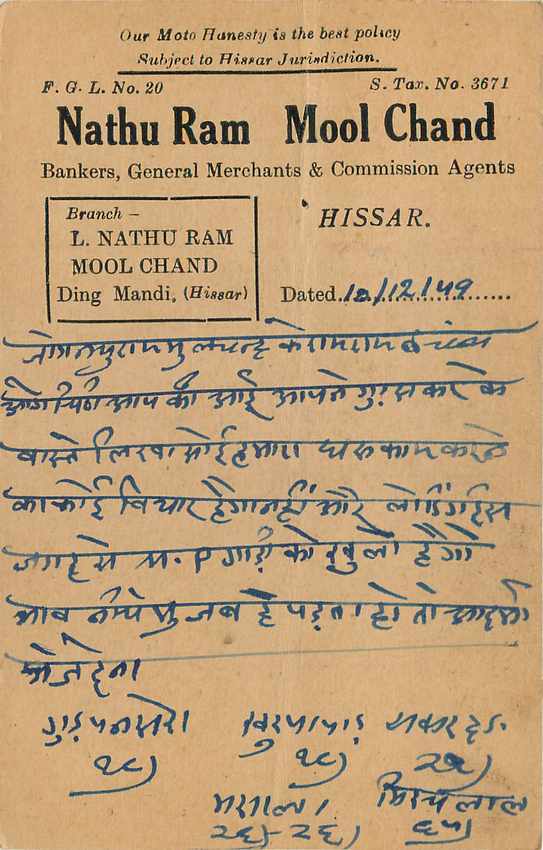 Our Moto Hunesty is the best policy
Subject to Hissar Jurisdiction.
F. G. L. No. 20 S. Tax. No. 3671
Nathu Ram Mool Chand
Bankers, General Merchants & Commission Agents
Branch –
L. NATHU RAM
MOOL CHAND
Ding Mandi, (Hissar)
HISSAR.
Dated 10/12/49
मुलचन्द के रामराम
आप की आई आपने
वास्ते लिखा सोई हमारा काम करने
का कोई विचार हैगा नहीं और लोडिंग ईस
जगह से M.P गाड़ी को खुली हैगी
भाव नीचे मुजब है पड़ता हो तो
भेज देना
गुड़ पनसेरा शकर
१८) १८)
मसाला मिरच लाल
२६)-२६) ६५)